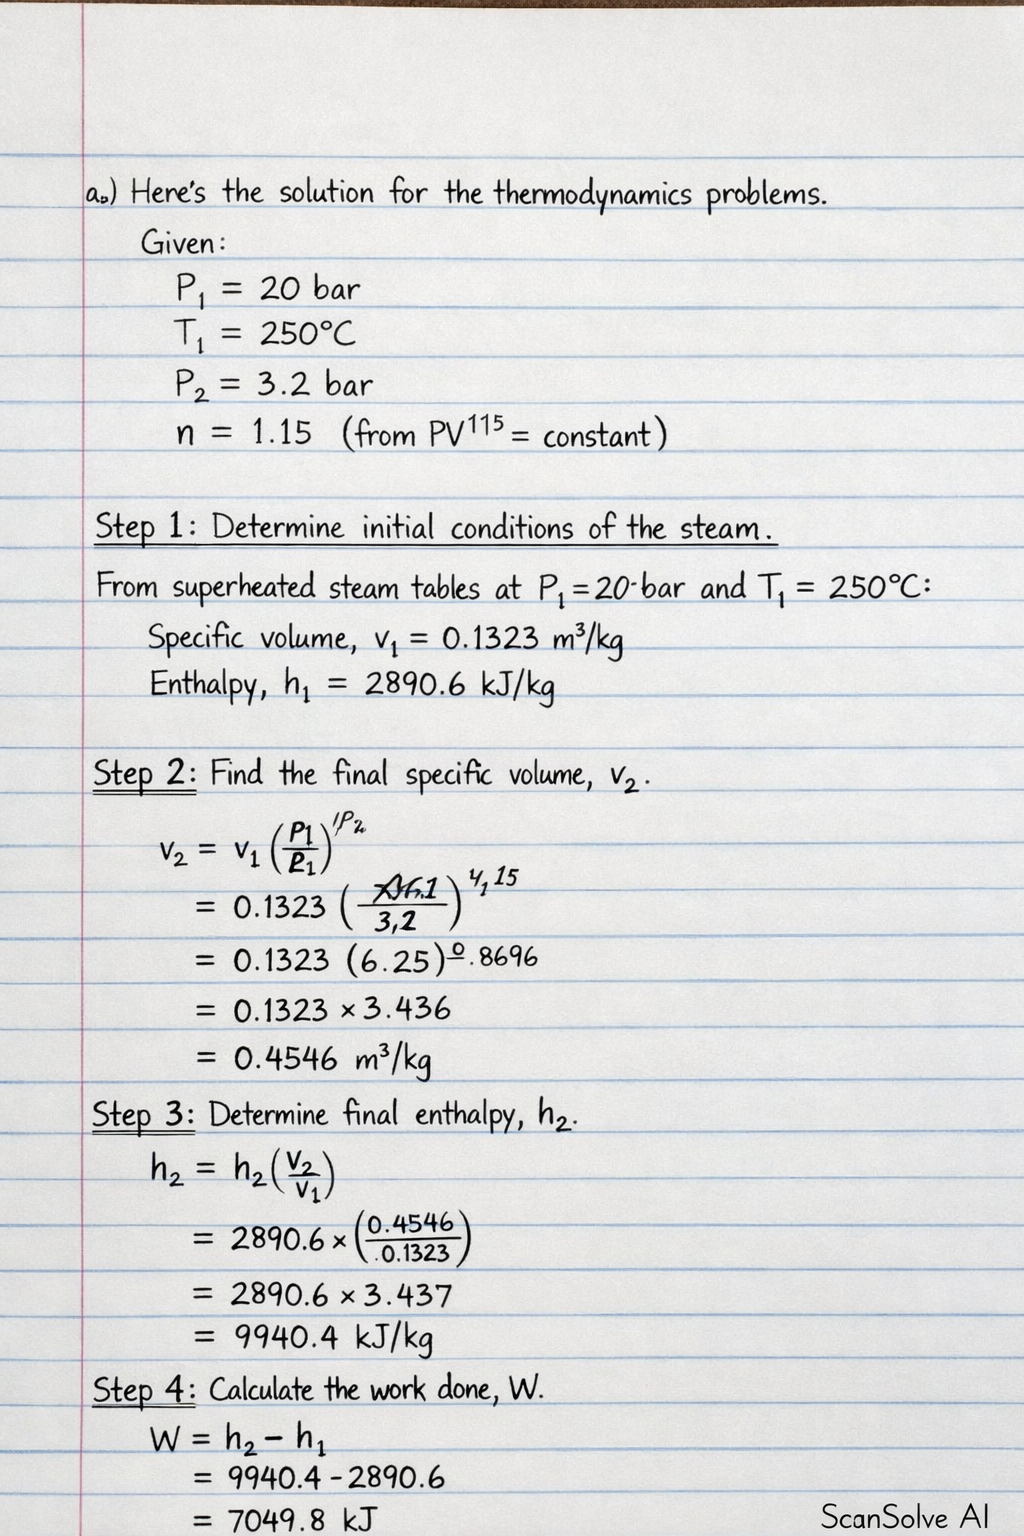 a.) Here's the solution for the thermodynamics problems.
Given:
P₁ = 20 bar
T₁ = 250°C
P₂ = 3.2 bar
n = 1.15 (from PV¹¹⁵ = constant)
Step 1: Determine initial conditions of the steam.
From superheated steam tables at P₁ = 20·bar and T₁ = 250°C:
Specific volume, v₁ = 0.1323 m³/kg
Enthalpy, h₁ = 2890.6 kJ/kg
Step 2: Find the final specific volume, v₂.
v₂ = v₁ (P1/P₁)^(/P₂)
= 0.1323 ( /3,2)
= 0.1323 (6.25)^0.8696
= 0.1323 × 3.436
= 0.4546 m³/kg
Step 3: Determine final enthalpy, h₂.
h₂ = h₂(V₂/V₁)
= 2890.6 × (0.4546/.0.1323)
= 2890.6 × 3.437
= 9940.4 kJ/kg
Step 4: Calculate the work done, W.
W = h₂ − h₁
= 9940.4 - 2890.6
= 7049.8 kJ
ScanSolve AI